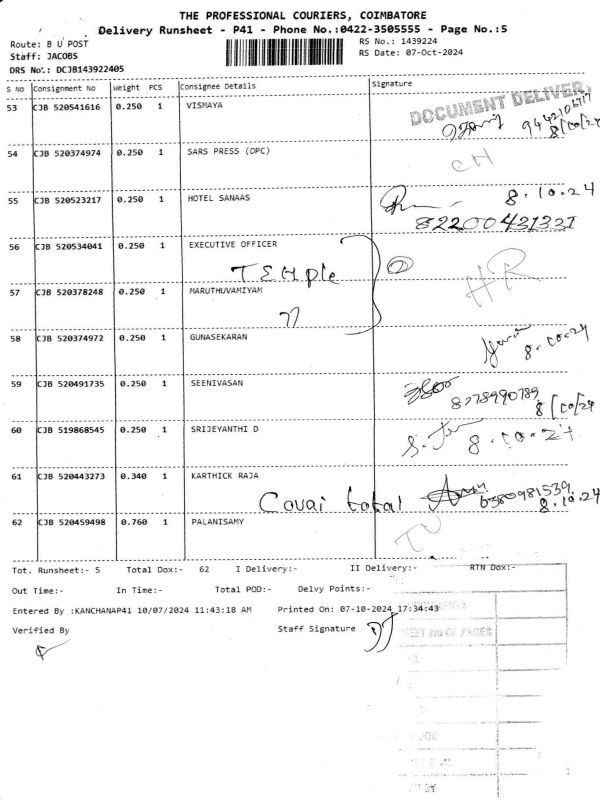 THE PROFESSIONAL COURIERS, COIMBATORE
Delivery Runsheet - P41 - Phone No.:0422-3505555 - Page No.:5
Route: B U POST
RS No.: 1439224
Staff: JACOBS
RS Date: 07-Oct-2024
DRS No.: DCJB143922405
S No Consignment No Weight PCS Consignee Details Signature
53 CJB 520541616 0.250 1 VISMAYA
DOCUMENT DELIVER
8/10/24
54 CJB 520374974 0.250 1 SARS PRESS (OPC)
CH
55 CJB 520523217 0.250 1 HOTEL SANAAS
8.10.24
56 CJB 520534041 0.250 1 EXECUTIVE OFFICER
TEMple
HR
57 CJB 520378248 0.250 1 MARUTHUVAMIYAM
58 CJB 520374972 0.250 1 GUNASEKARAN
8.10.24
59 CJB 520491735 0.250 1 SEENIVASAN
8778990789
8/10/24
60 CJB 519868545 0.250 1 SRIJEYANTHI D
8.10.24
61 CJB 520443273 0.340 1 KARTHICK RAJA
Covai total
6380981539
8.10.24
62 CJB 520459498 0.760 1 PALANISAMY
Tot. Runsheet:- 5 Total Dox:- 62 I Delivery:- II Delivery:- RTN Dox:-
Out Time:- In Time:- Total POD:- Delvy Points:-
Entered By :KANCHANAP41 10/07/2024 11:43:18 AM Printed On: 07-10-2024 17:34:43
Verified By Staff Signature